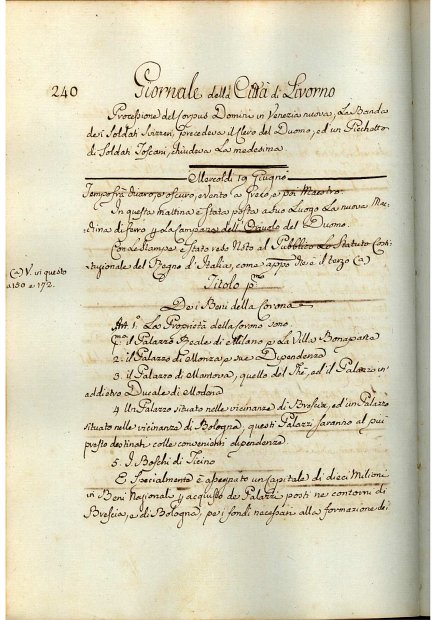 240 Giornale della Città di Livorno
Processione del Corpus Domini in Venezia nuova, La Banda
de i Soldati Svizzeri, precedeva il Clero del Duomo, ed un Picchetto
di Soldati Toscani, chiudeva La medesima.
Mercoldì 19 Giugno
Tempo frà chiaro, e oscuro, e vento a Greco, e poi Maestro.
In questa mattina è stata posta a suo Luogo La nuova Mac-
china di ferro p La Campana dell' Orivolo del Duomo.
Con Le Stampe è Stato reso Noto al Pubblico Lo Statuto Costi-
tuzionale del Regno d'Italia, come appo
(a) V. in questo
a 150 e 172.
il terzo (a)
Titolo pmo
De i Beni della Corona
Art. 1º. La Proprietà della Corona sono.
pmo il Palazzo Reale di Milano e La Villa Bonaparte
2. il Palazzo di Monza, e sue Dipendenze
3. il Palazzo di Mantova, quello del Thè, ed il Palazzo in
addietro Ducale di Modena
4 Un Palazzo situato nelle vicinanze di Brescia, ed un Palazzo
situato nelle vicinanze di Bologna, questi Palazzi saranno al più
presto destinati colle convenienti dipendenze
5. I Boschi di Ticino
E Specialmente è assegnato un Capitale di dieci Milioni
in Beni Nazionali p acquisto de Palazzi posti ne contorni di
Brescia, e di Bologna, pe i fondi necessari alla formazione de i